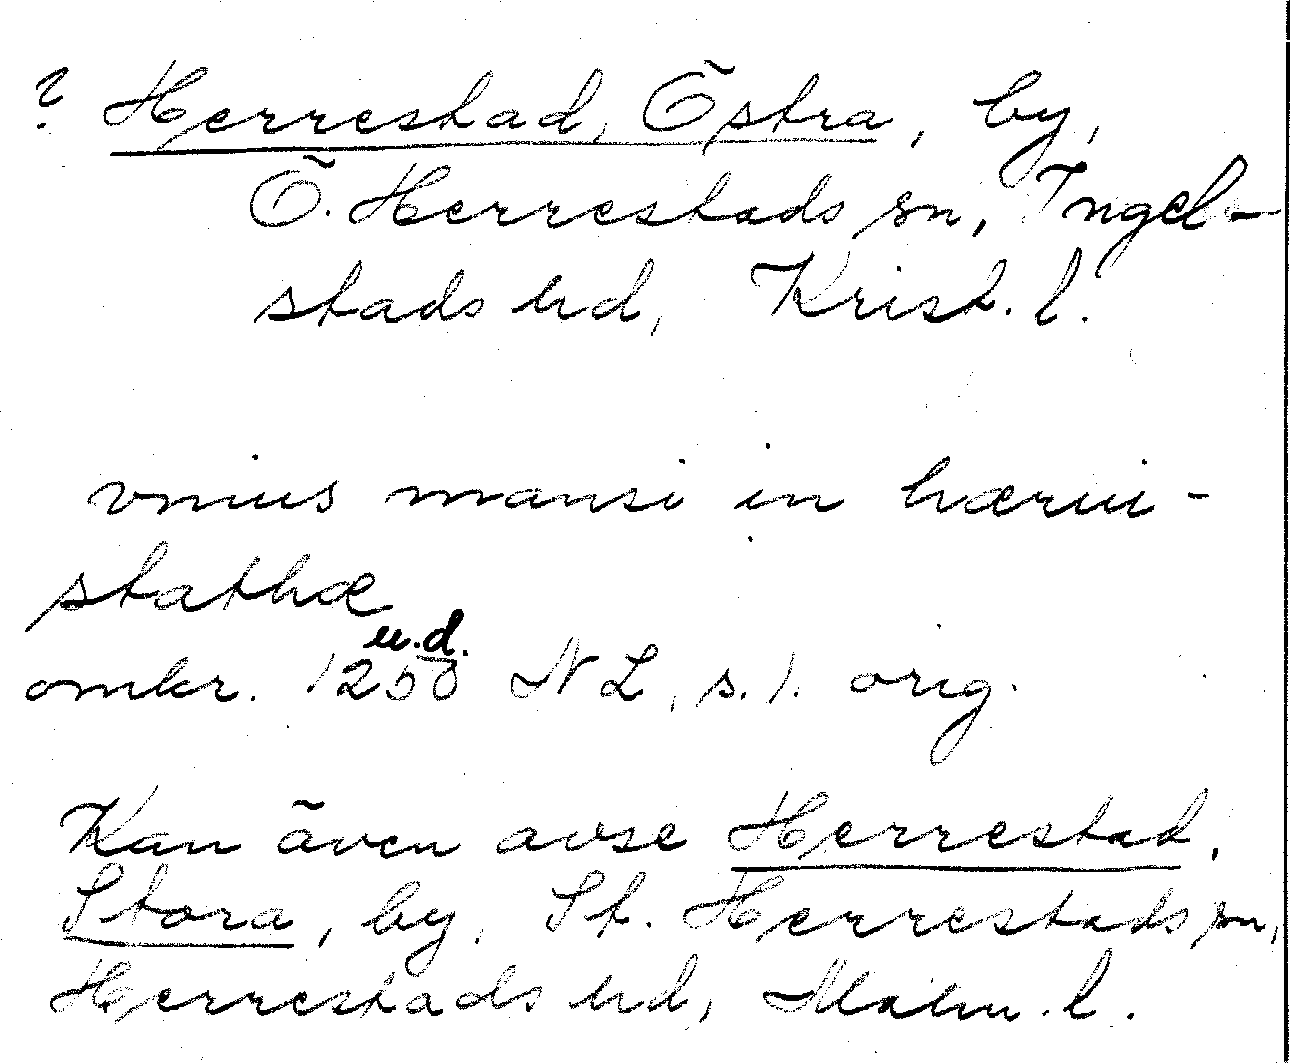 ? Herrestad, Östra, by,
Ö. Herrestads sn, Ingel-
stads hd, Krist. l.
vnius mansi in hærui-
stathæ
u.d.
omkr. 1250 NL, s. 1. orig.
Kan även avse Herrestad,
Stora, by, St. Herrestads sn,
Herrestads hd, Malm. l.